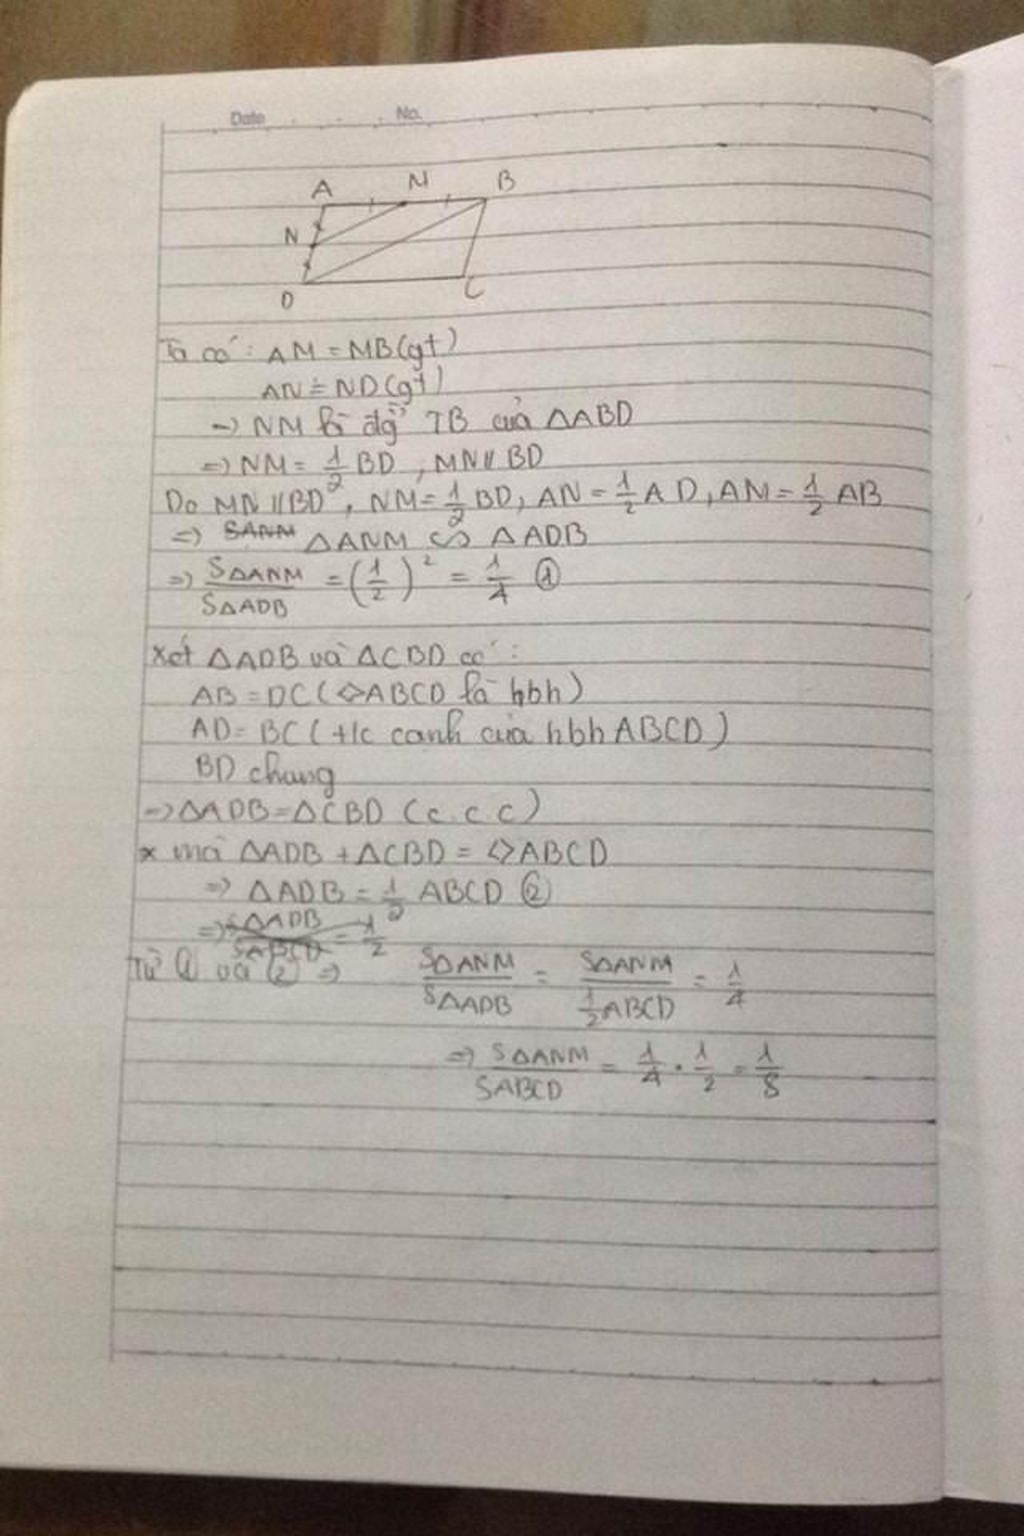 Date No.
A M B
N
D C
Ta có: AM = MB (gt)
AN = ND (gt)
=> NM là đg TB của ΔABD
=> NM = 1/2 BD, MN // BD
Do MN // BD, NM = 1/2 BD, AN = 1/2 AD, AM = 1/2 AB
=> SANM ΔANM ∽ ΔADB
=> SΔANM/SΔADB = (1/2)² = 1/4 ①
Xét ΔADB và ΔCBD có:
AB = DC (◇ABCD là hbh)
AD = BC (t/c canh của hbh ABCD)
BD chung
=> ΔADB = ΔCBD (c.c.c)
* mà ΔADB + ΔCBD = ◇ABCD
=> ΔADB = 1/2 ABCD ②
=> SΔADB/SABCD = 1/2
Từ ① và ② => SΔANM/SΔADB = SΔANM/(1/2 ABCD) = 1/4
=> SΔANM/SABCD = 1/4 . 1/2 = 1/8